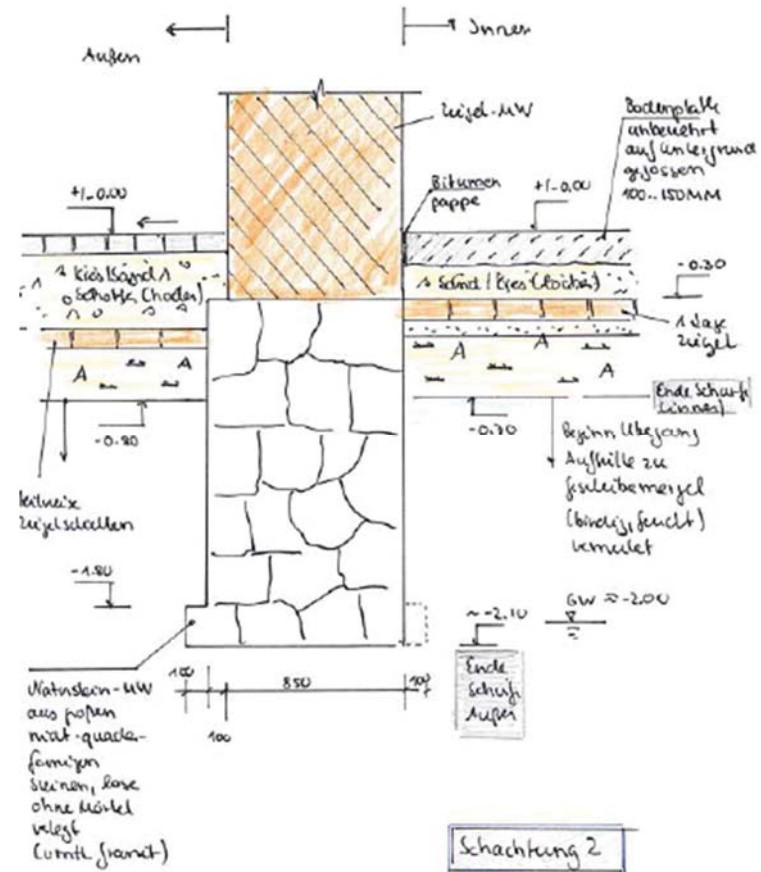 Außen
Innen
Ziegel-MW
Bodenplatte
unbewehrt
auf Untergrund
gegossen
100..150MM
Bitumen
pappe
+/-0.00
+/-0.00
Kies/Sand
Schotter (locker)
Sand/Kies (locker)
-0.30
1 Lage
Ziegel
A
A
A
A
A
A
-0.80
Ende Schurf
(innen)
-0.70
Beginn Übergang
Auffülle zu
Geschiebemergel
(bindig, feucht)
vermutet
teilweise
Ziegelschollen
-1.80
~-2.10
GW ≈-2.00
100
850
100
100
Ende
Schurf
Außen
Naturstein-MW
aus großen
nicht-quader-
förmigen
Steinen, lose
ohne Mörtel
verlegt
(vmtl. Granit)
Schachtung 2